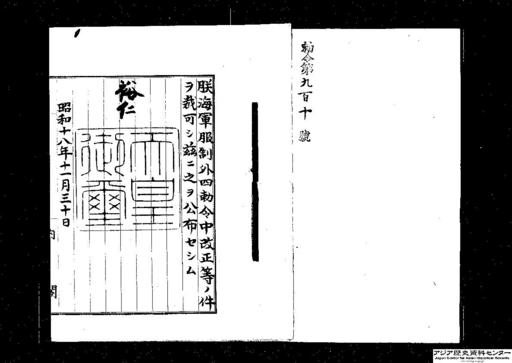 勅令第九百十號
朕海軍服制外四勅令中改正等ノ件
ヲ裁可シ茲ニ之ヲ公布セシム
裕仁
天皇
御璽
昭和十八年十一月三十日
内閣
アジア歴史資料センター
Japan Center for Asian Historical Records